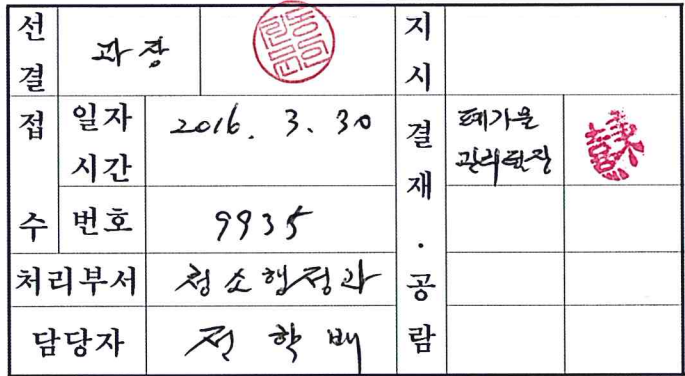 선결 과장 지시
접수 일자 시간 2016. 3. 30 결재·공람
번호 9935
처리부서 청소행정과
담당자